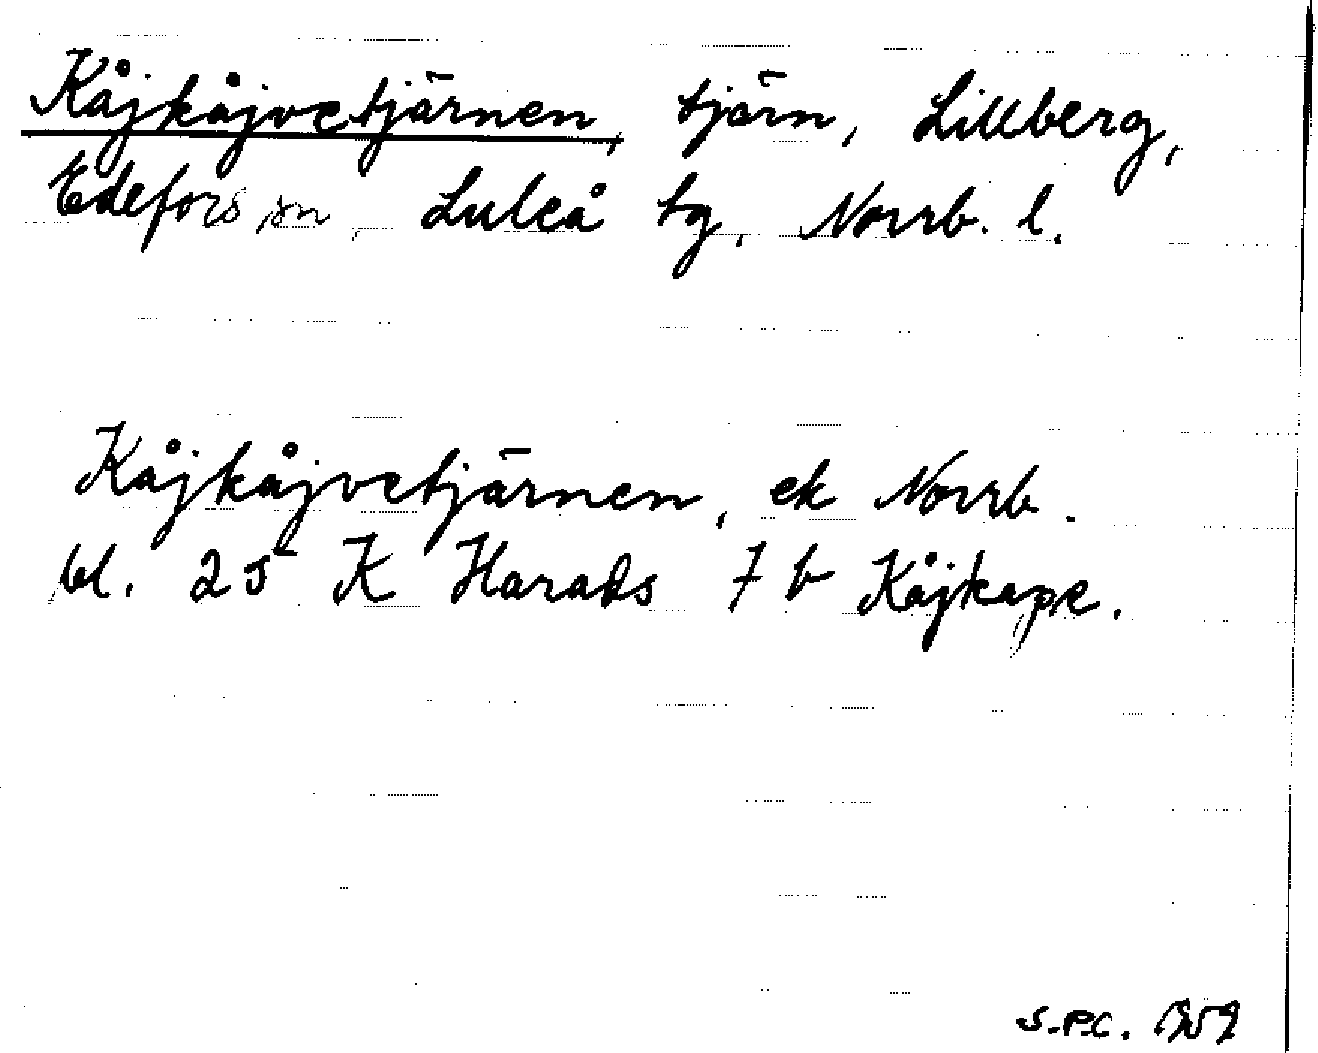 Kåjkåjvetjärnen, tjärn, Lillberg,
Edefors sn, Luleå tg, Norrb. l.
Kåjkåjvetjärnen, ek Norrb.
bl. 25 K Harads 7 b Kåjkape.
S.P.C. 1959